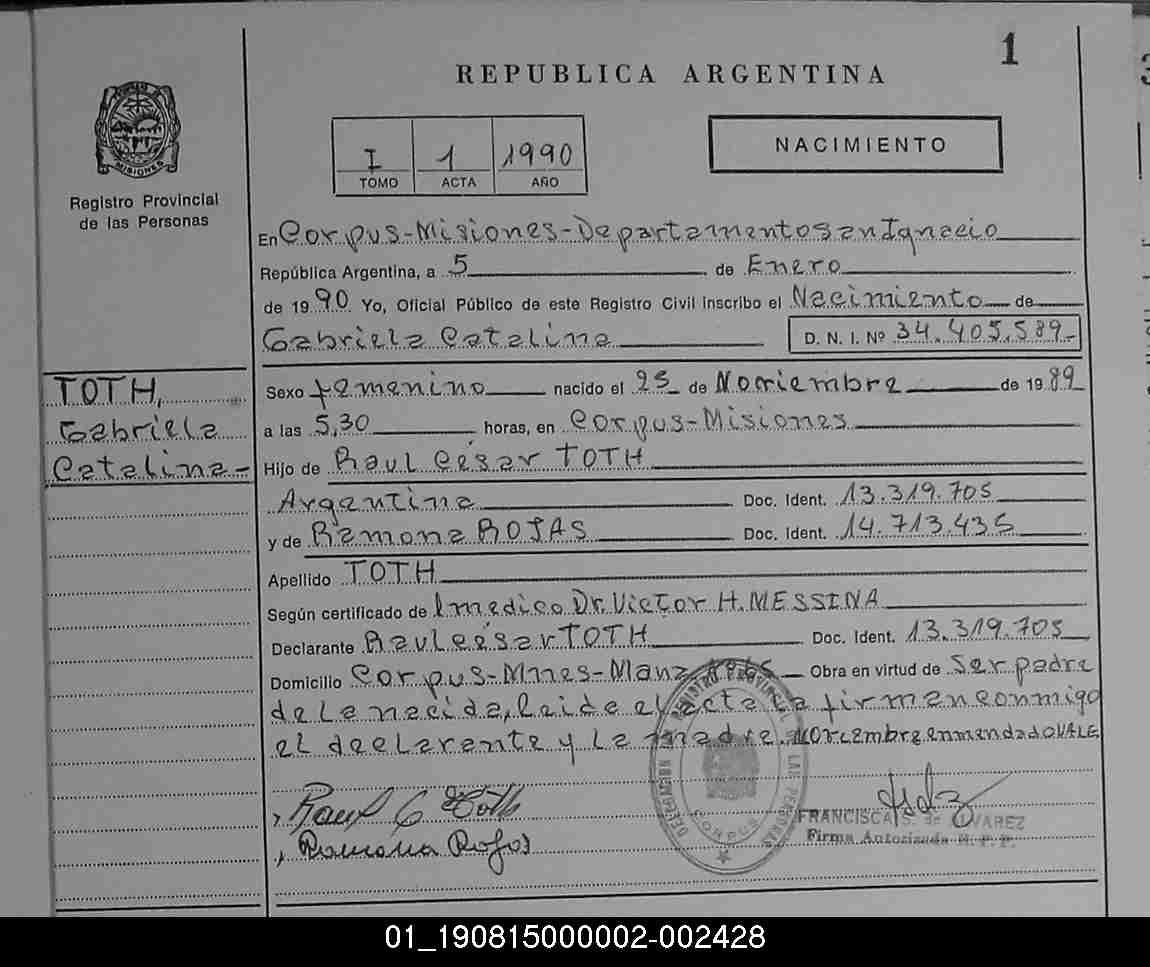 1
REPUBLICA ARGENTINA
MISIONES
Registro Provincial
de las Personas
I 1 1990
TOMO ACTA AÑO
NACIMIENTO
En Corpus-Misiones-Departamento San Ignacio
República Argentina, a 5 de Enero
de 1990 Yo, Oficial Público de este Registro Civil inscribo el Nacimiento de
Gabriela Catalina D. N. I. Nº 34.405.589-
TOTH,
Gabriela
Catalina-
Sexo femenino nacido el 25 de Noviembre de 1989
a las 5,30 horas, en Corpus-Misiones
Hijo de Raul César TOTH
Argentina Doc. Ident. 13.319.705
y de Ramona ROJAS Doc. Ident. 14.713.435
Apellido TOTH
Según certificado de l medico Dr. Victor H. MESSINA
Declarante Raul César TOTH Doc. Ident. 13.319.705
Domicilio Corpus-Mnes-Manz. Obra en virtud de Ser padre
de la nacida, leida el acta la firman conmigo
el declarante y la madre. Noviembre enmendado VALE
REGISTRO PROVINCIAL DE LAS PERSONAS
DELEGACION
CORPUS
Raul C Toth
Ramona Rojas
FRANCISCA S. de ALVAREZ
Firma Autorizada
01_190815000002-002428